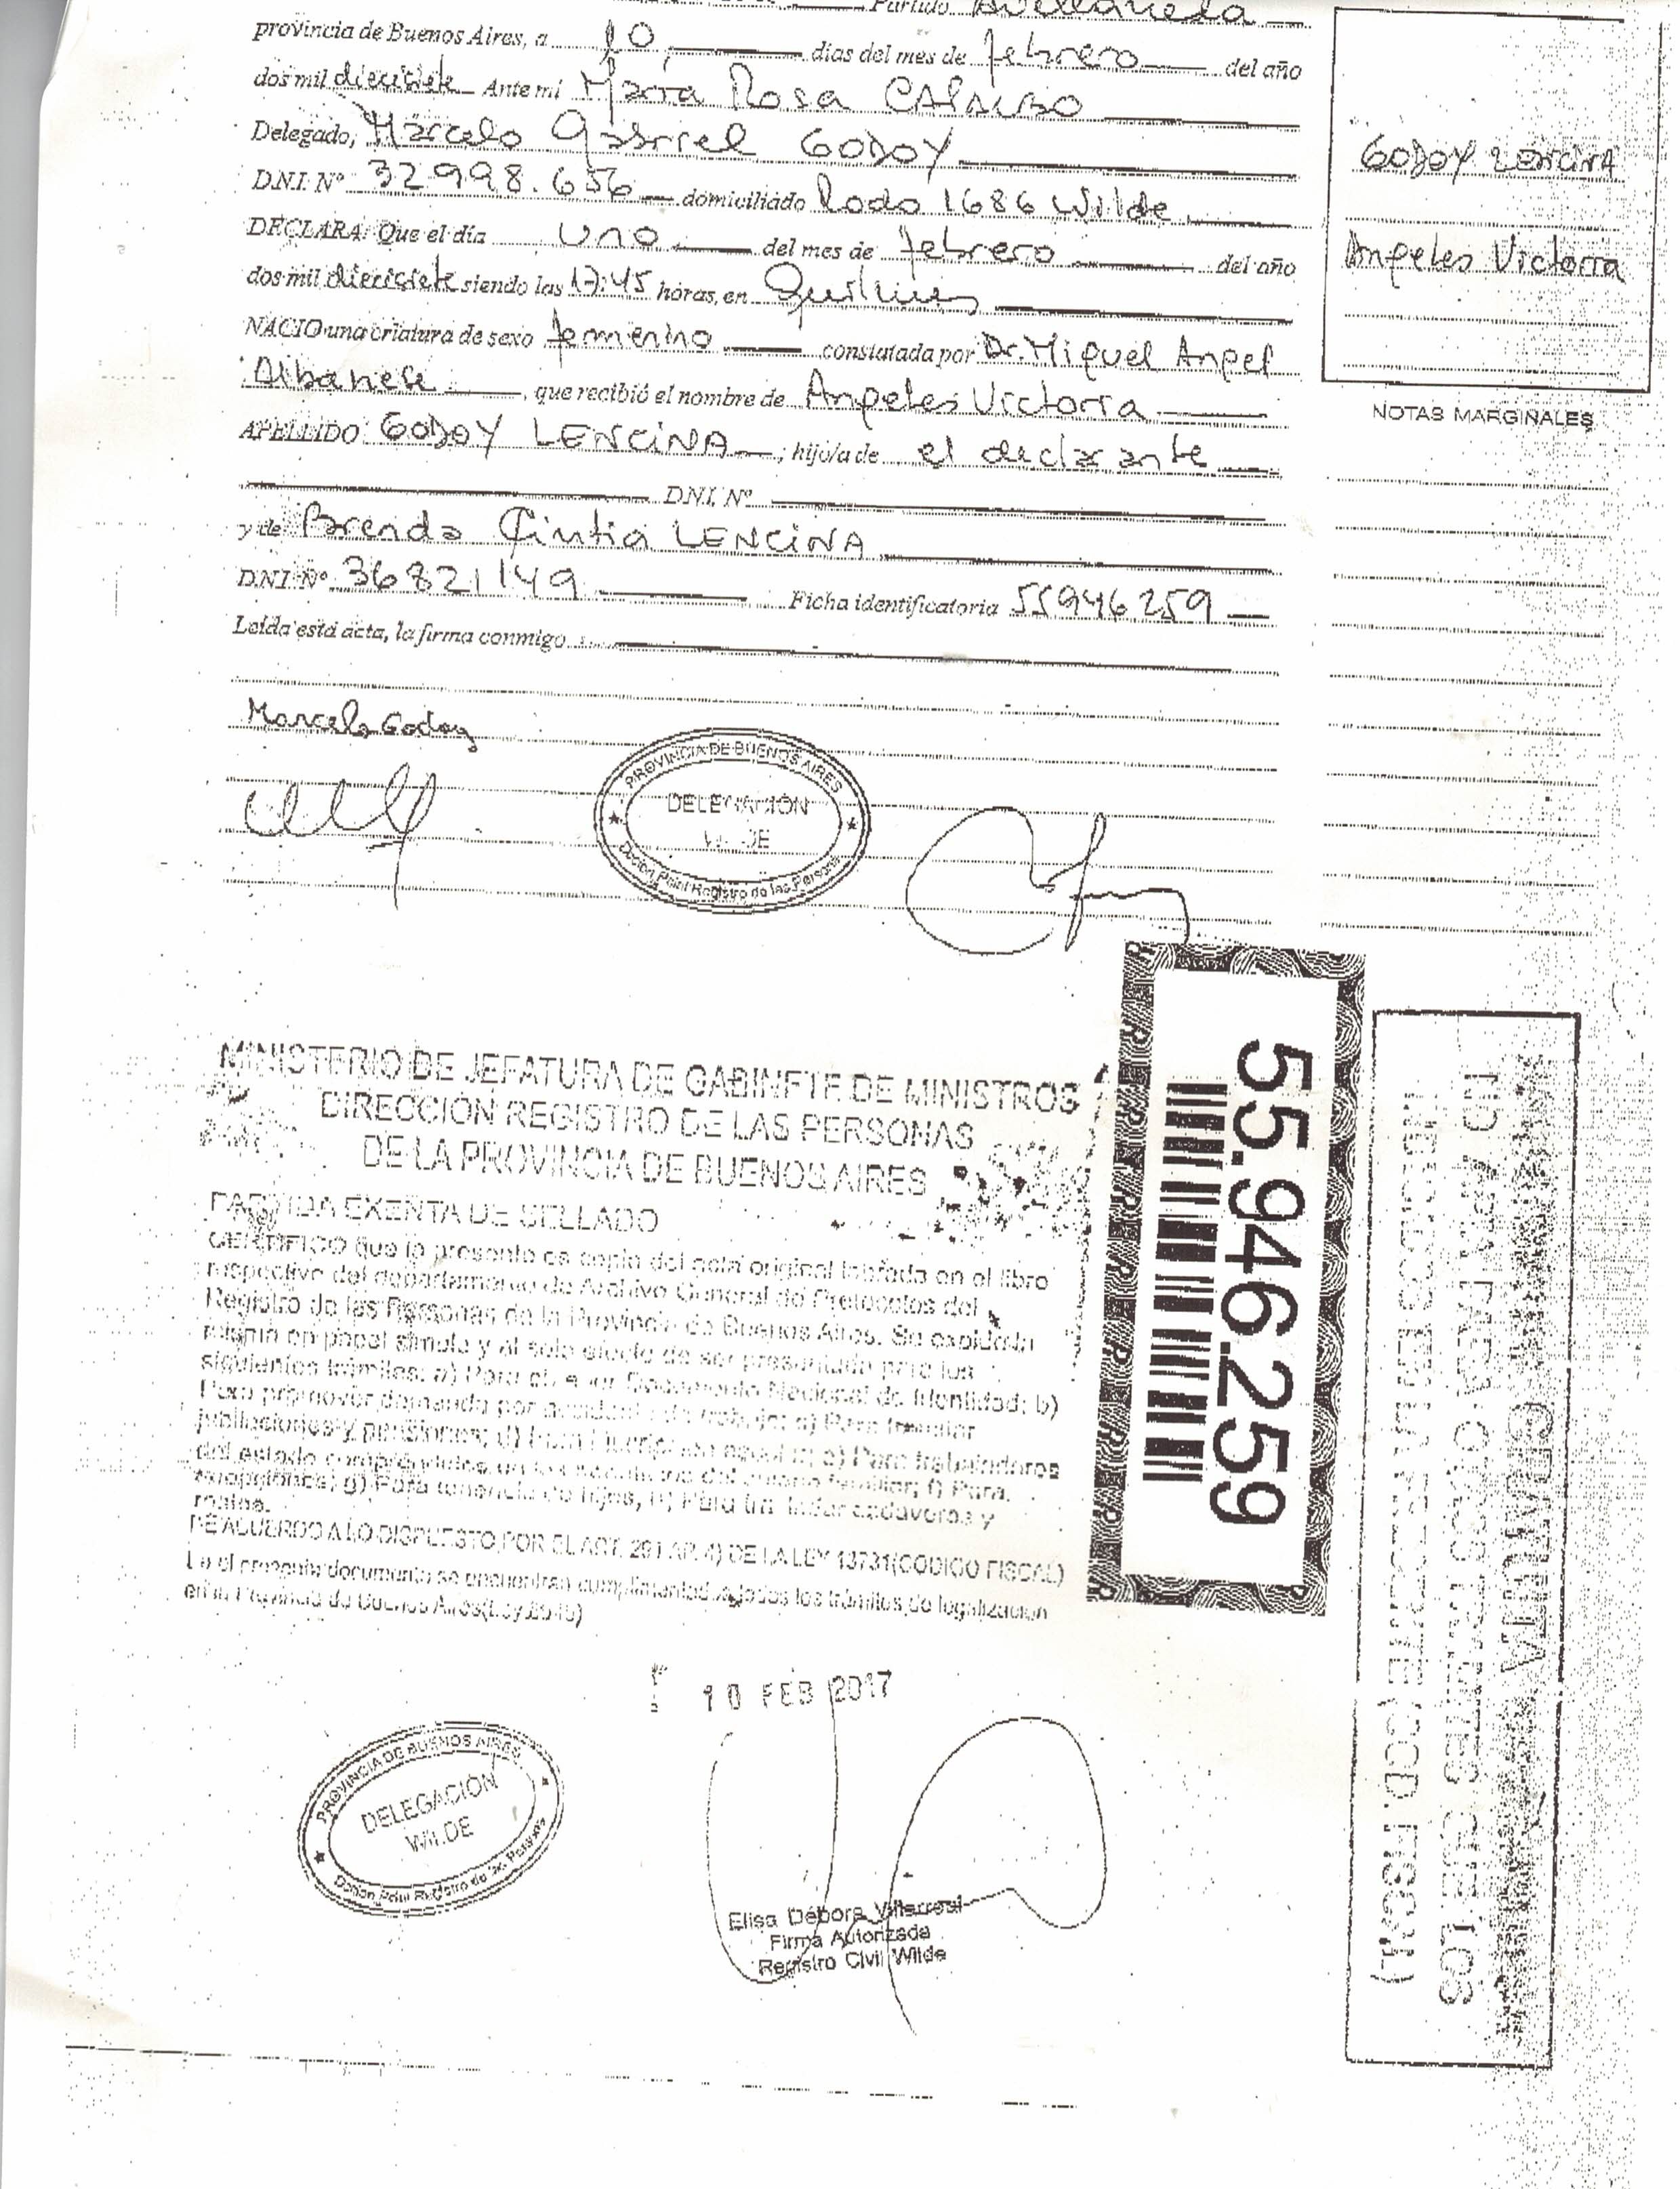 Partido Avellaneda
provincia de Buenos Aires, a 10 días del mes de febrero del año
dos mil diecisiete Ante mi Maria Rosa
Delegado, Marcelo Gabriel GODOY
D.N.I. Nº 32998.656 domiciliado Rodo 1686 Wilde
DECLARA: Que el día uno del mes de febrero del año
dos mil diecisiete siendo las 17:45 horas, en Quilmes
NACIO una criatura de sexo femenino constatada por Dr. Miguel Angel
Albanese, que recibió el nombre de Angeles Victoria
APELLIDO: GODOY LENCINA; hijo/a de el declarante
D.N.I. Nº
y de Brenda Cintia LENCINA
D.N.I. Nº 36821149 Ficha identificatoria 55946259
Leída esta acta, la firma conmigo
Marcelo Godoy
PROVINCIA DE BUENOS AIRES
DELEGACIÓN
WILDE
Registro de las Personas
GODOY LENCINA
Angeles Victoria
NOTAS MARGINALES
MINISTERIO DE JEFATURA DE GABINETE DE MINISTROS
DIRECCIÓN REGISTRO DE LAS PERSONAS
DE LA PROVINCIA DE BUENOS AIRES
PARTIDA EXENTA DE SELLADO
CERTIFICO que la presente es copia del acta original labrada en el libro
respectivo del departamento de Archivo General de Protocolos del
Registro de las Personas de la Provincia de Buenos Aires. Se expide la
misma en papel simple y al solo efecto de ser presentado para los
siguientes trámites: a) Para Documento Nacional de Identidad; b)
Para promover demanda por c) Para tramitar
jubilaciones y pensiones; d) Para e) Para trabajadores
del estado f) Para
g) Para tenencia de hijos, h) Para cadaveres y
restos.
DE ACUERDO A LO DISPUESTO POR EL ART. DE LA LEY 13731(CODIGO FISCAL)
En el presente documento se encuentran cumplimentados todos los trámites de legalización
en la Provincia de Buenos Aires
55.946.259
GRATUITA
NO APTA PARA OTROS TRAMITES QUE LOS
(COD. FISCAL)
10 FEB 2017
PROVINCIA DE BUENOS AIRES
DELEGACIÓN
WILDE
Elisa Débora Villarreal
Firma Autorizada
Registro Civil Wilde